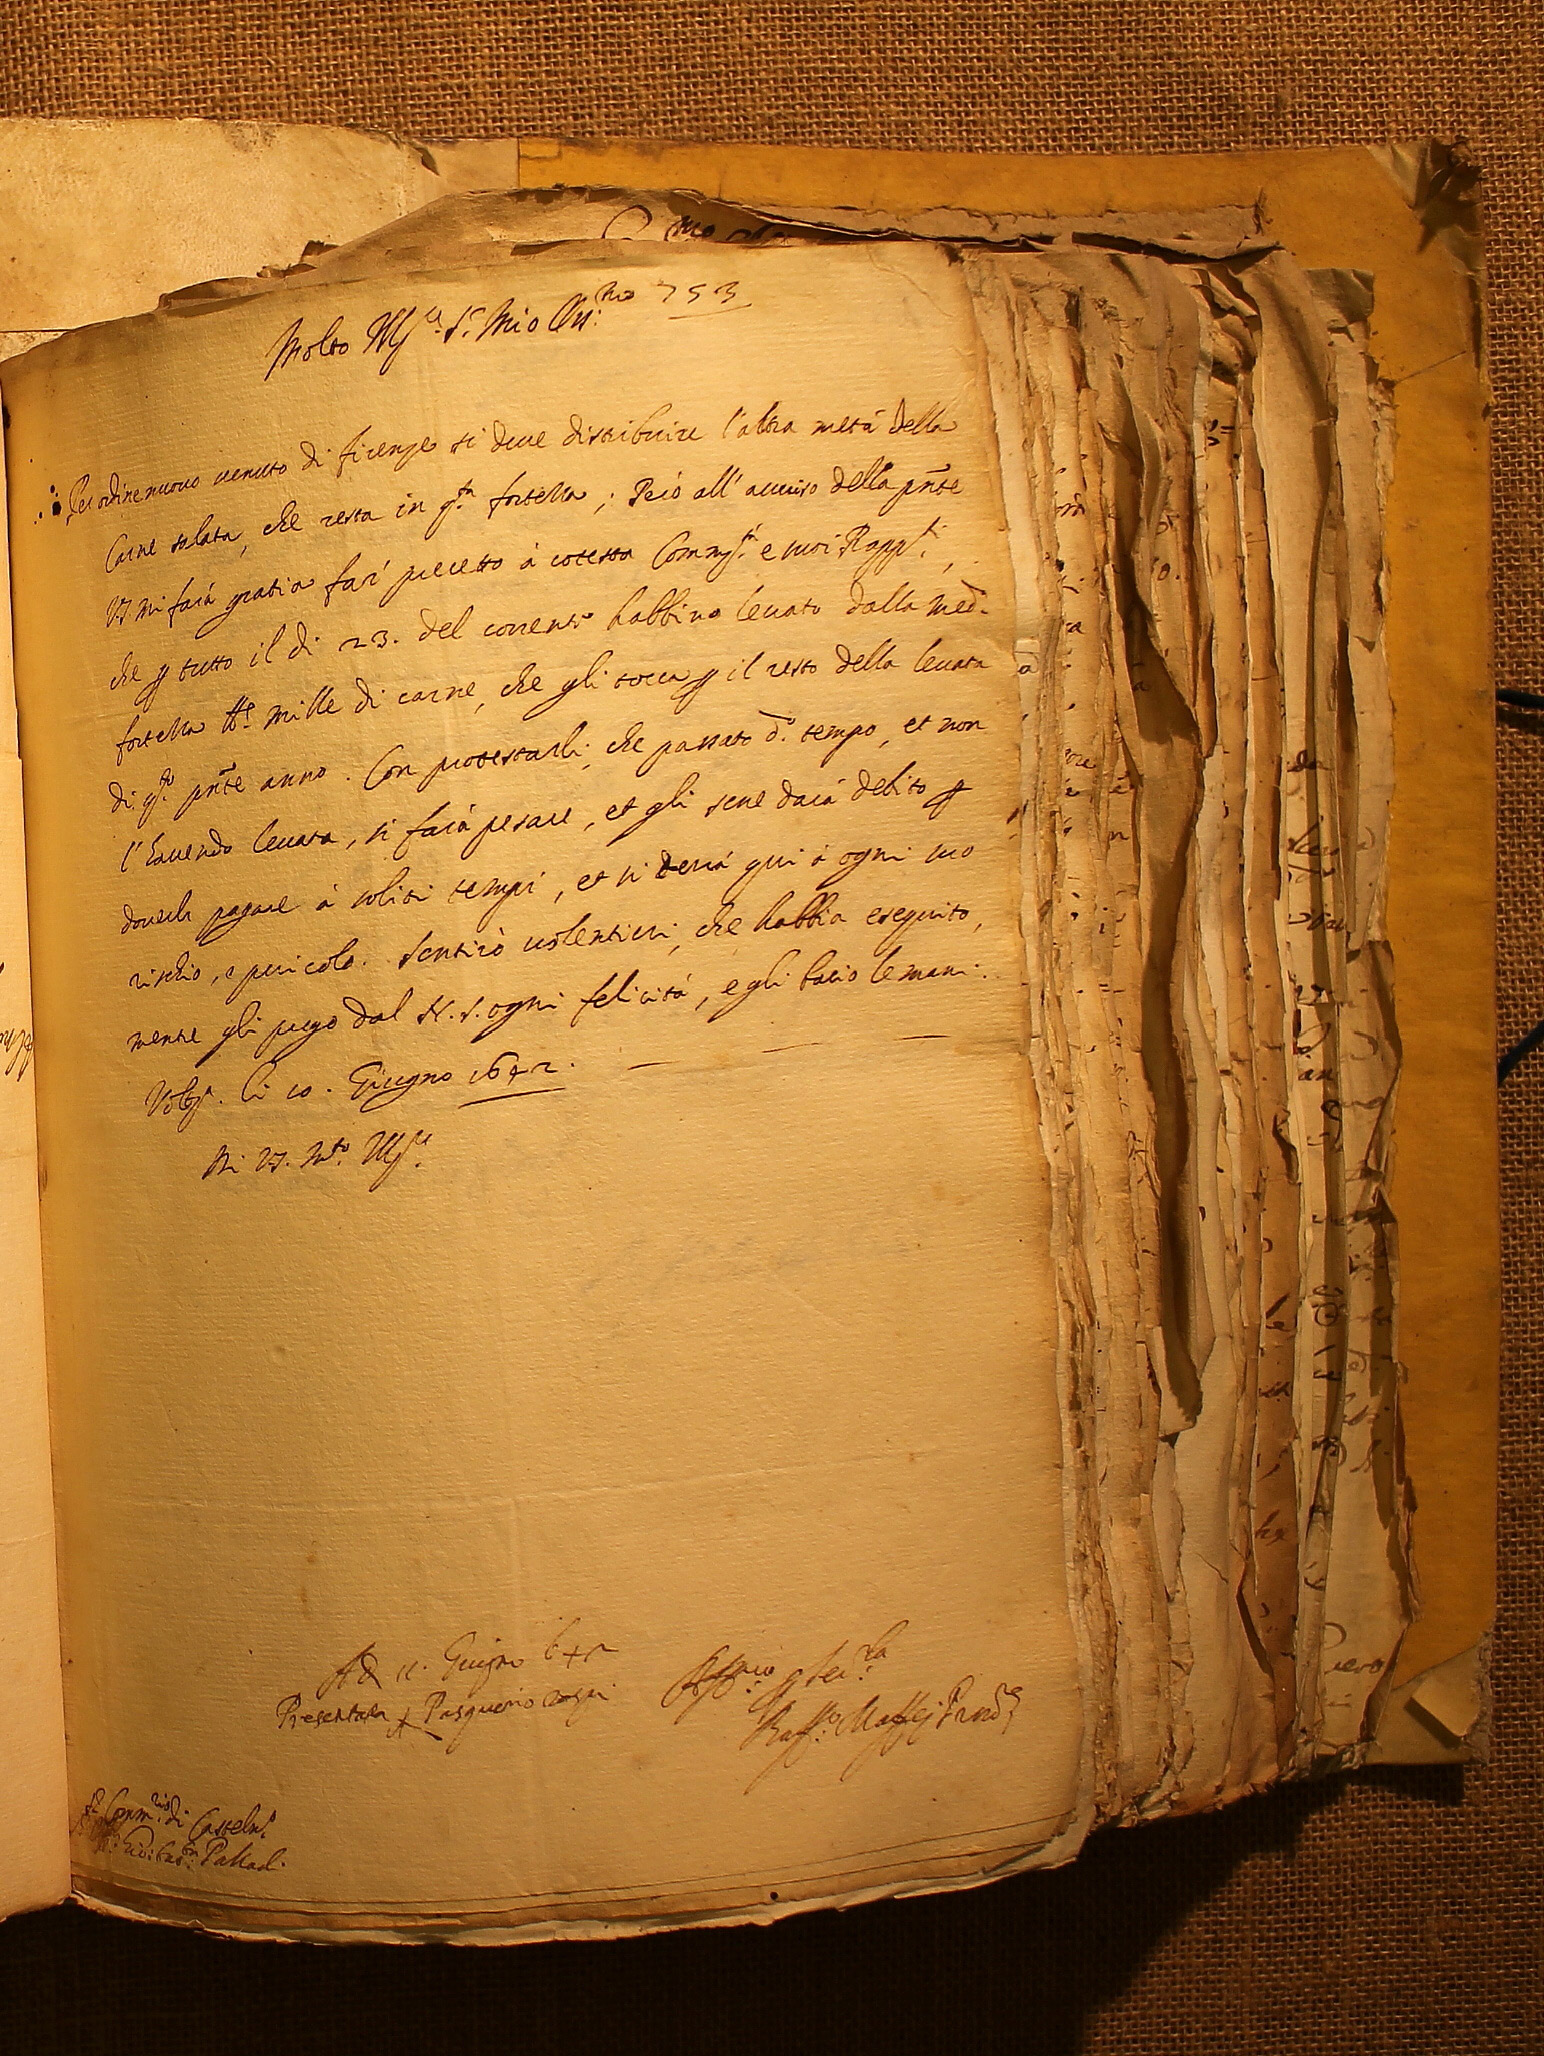 753
Molto Ill.re S.r Mio Oss.mo
Per ordine nuovo venuto di firenze si deve distribuire l'altra metá della
Carne salata, che resta in q.ta fortezza; Peró all' avviso della pn̄te
V.S. mi fará gratia fare precetto á cotesta Comm.tà e suoi Rapp.ti,
che p tutto il di 23. del corrente habbino levato dalla med.a
fortezza lb.e mille di carne, che gli tocca p il resto della levata
di q.to pn̄te anno. Con protestarli, che passato d.o tempo, et non
l'havendo levata, si fará pesare, et gli sene dará debito p
doverla pagare á soliti tempi, et si terrá qui á ogni suo
rischio, e pericolo. Sentiró volentieri, che habbia eseguito,
mentre gli prego dal N.S. ogni felicitá, e gli bacio le mani.
Volt.a li 10. Giugno 1642.
Di V.S. M.to Ill.re
Ad 11. Giugno 642
Presentata p Pasquino
Aff.mo p ser.la
Raff.o Maffej Prov.re
S.r Comm.rio di Casteln.o
Gio: Bat.a Pallad.